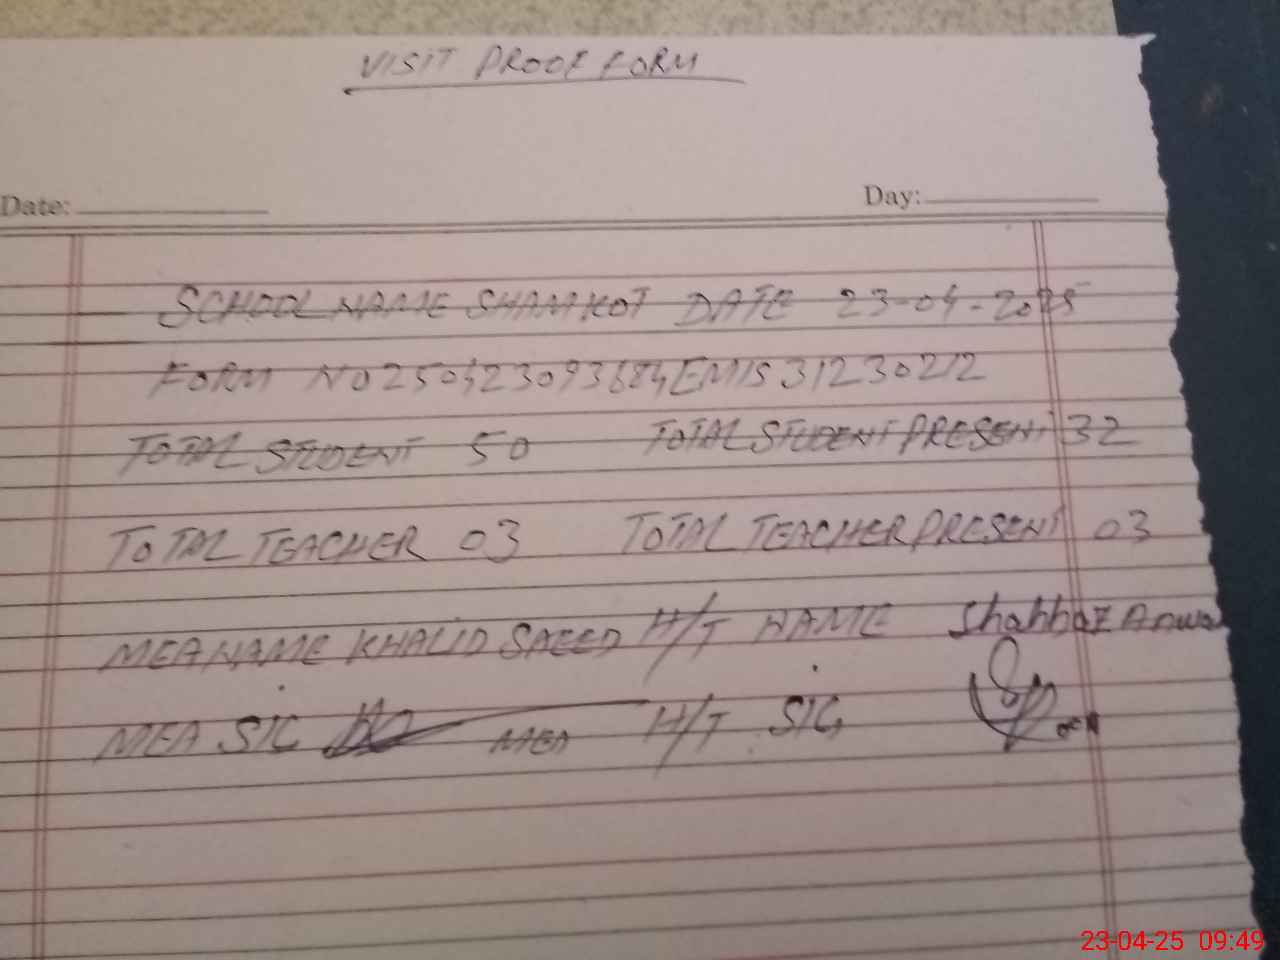 VISIT PROOF FORM
Date: Day:
SCHOOL NAME SHAMKOT DATE 23-04-2025
FORM NO 250423093684 EMIS 31230212
TOTAL STUDENT 50 TOTAL STUDENT PRESENT 32
TOTAL TEACHER 03 TOTAL TEACHER PRESENT 03
MEA NAME KHALID SAEED H/T NAME Shahbaz Anwa
MEA SIG MEA H/T SIG
23-04-25 09:49